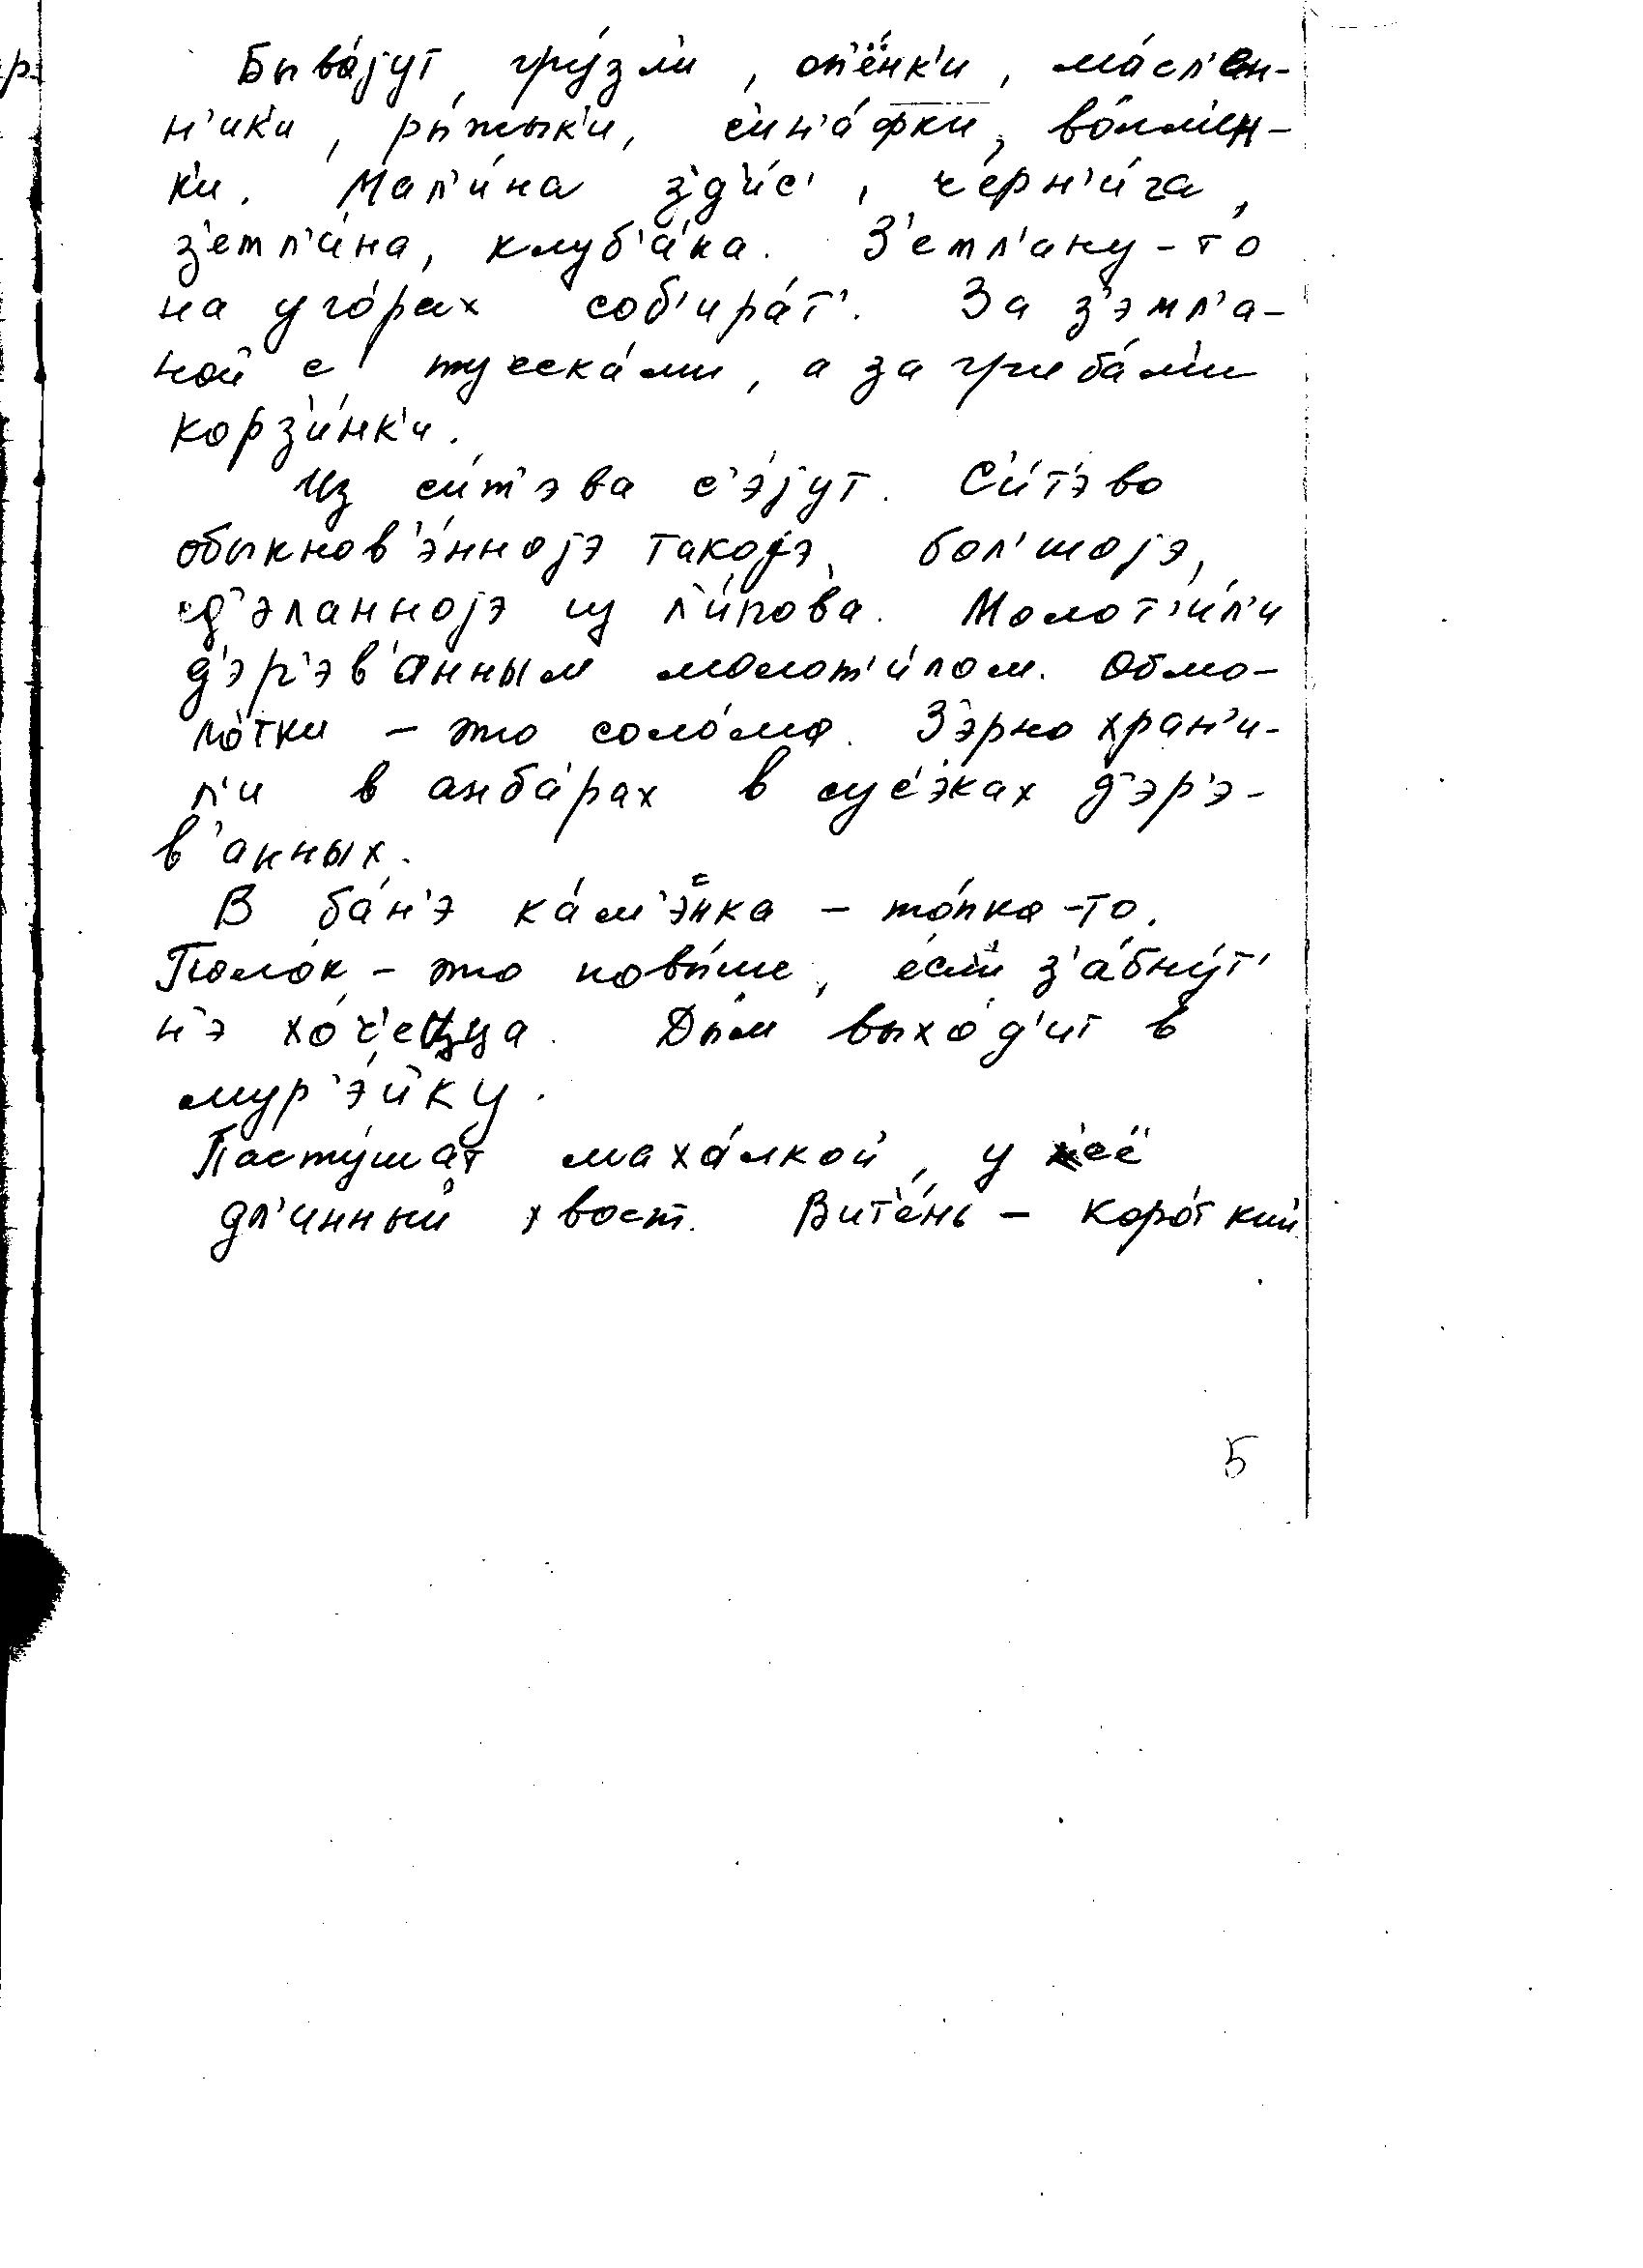 р.
Быва́јут гру́зли, оп'ёнк'и, ма́сл'ен-
н'ик'и, ры́жык'и, с'ин'а́фк'и, во́лм'ен-
к'и. Мал'и́на з'д'и́с', ч'ерн'и́га,
з'емл'и́на, клуб'а́ка. З'емл'ану-то
на уго́рах соб'ира́т'. За з'эмл'а-
ной с туеска́ми, а за гриба́м'и
корз'и́нк'и.
Из с'и́т'эва с'э́јут. С'и́т'эво
обыкнов'э́нноја такоја, бол'шоја,
сд'эланноја из л'и́пова. Молот'и́л'и
д'эр'эв'анным молот'и́лом. Обмо-
ло́тки – это соло́ма. З'эрно хран'и-
л'и в анба́рах в сус'э́ках д'эр'э-
в'анных.
В ба́н'э ка́м'энка – то́пка-то.
Поло́к – это повы́ше, е́сли з'а́бнут'
н'э хо́ч'ецца. Ды́м выхо́д'ит в
мур'э́йку.
Пасту́шат маха́лкой, у неё
дл'инный хвост. Вит'е́нь – коро́ткий.
5